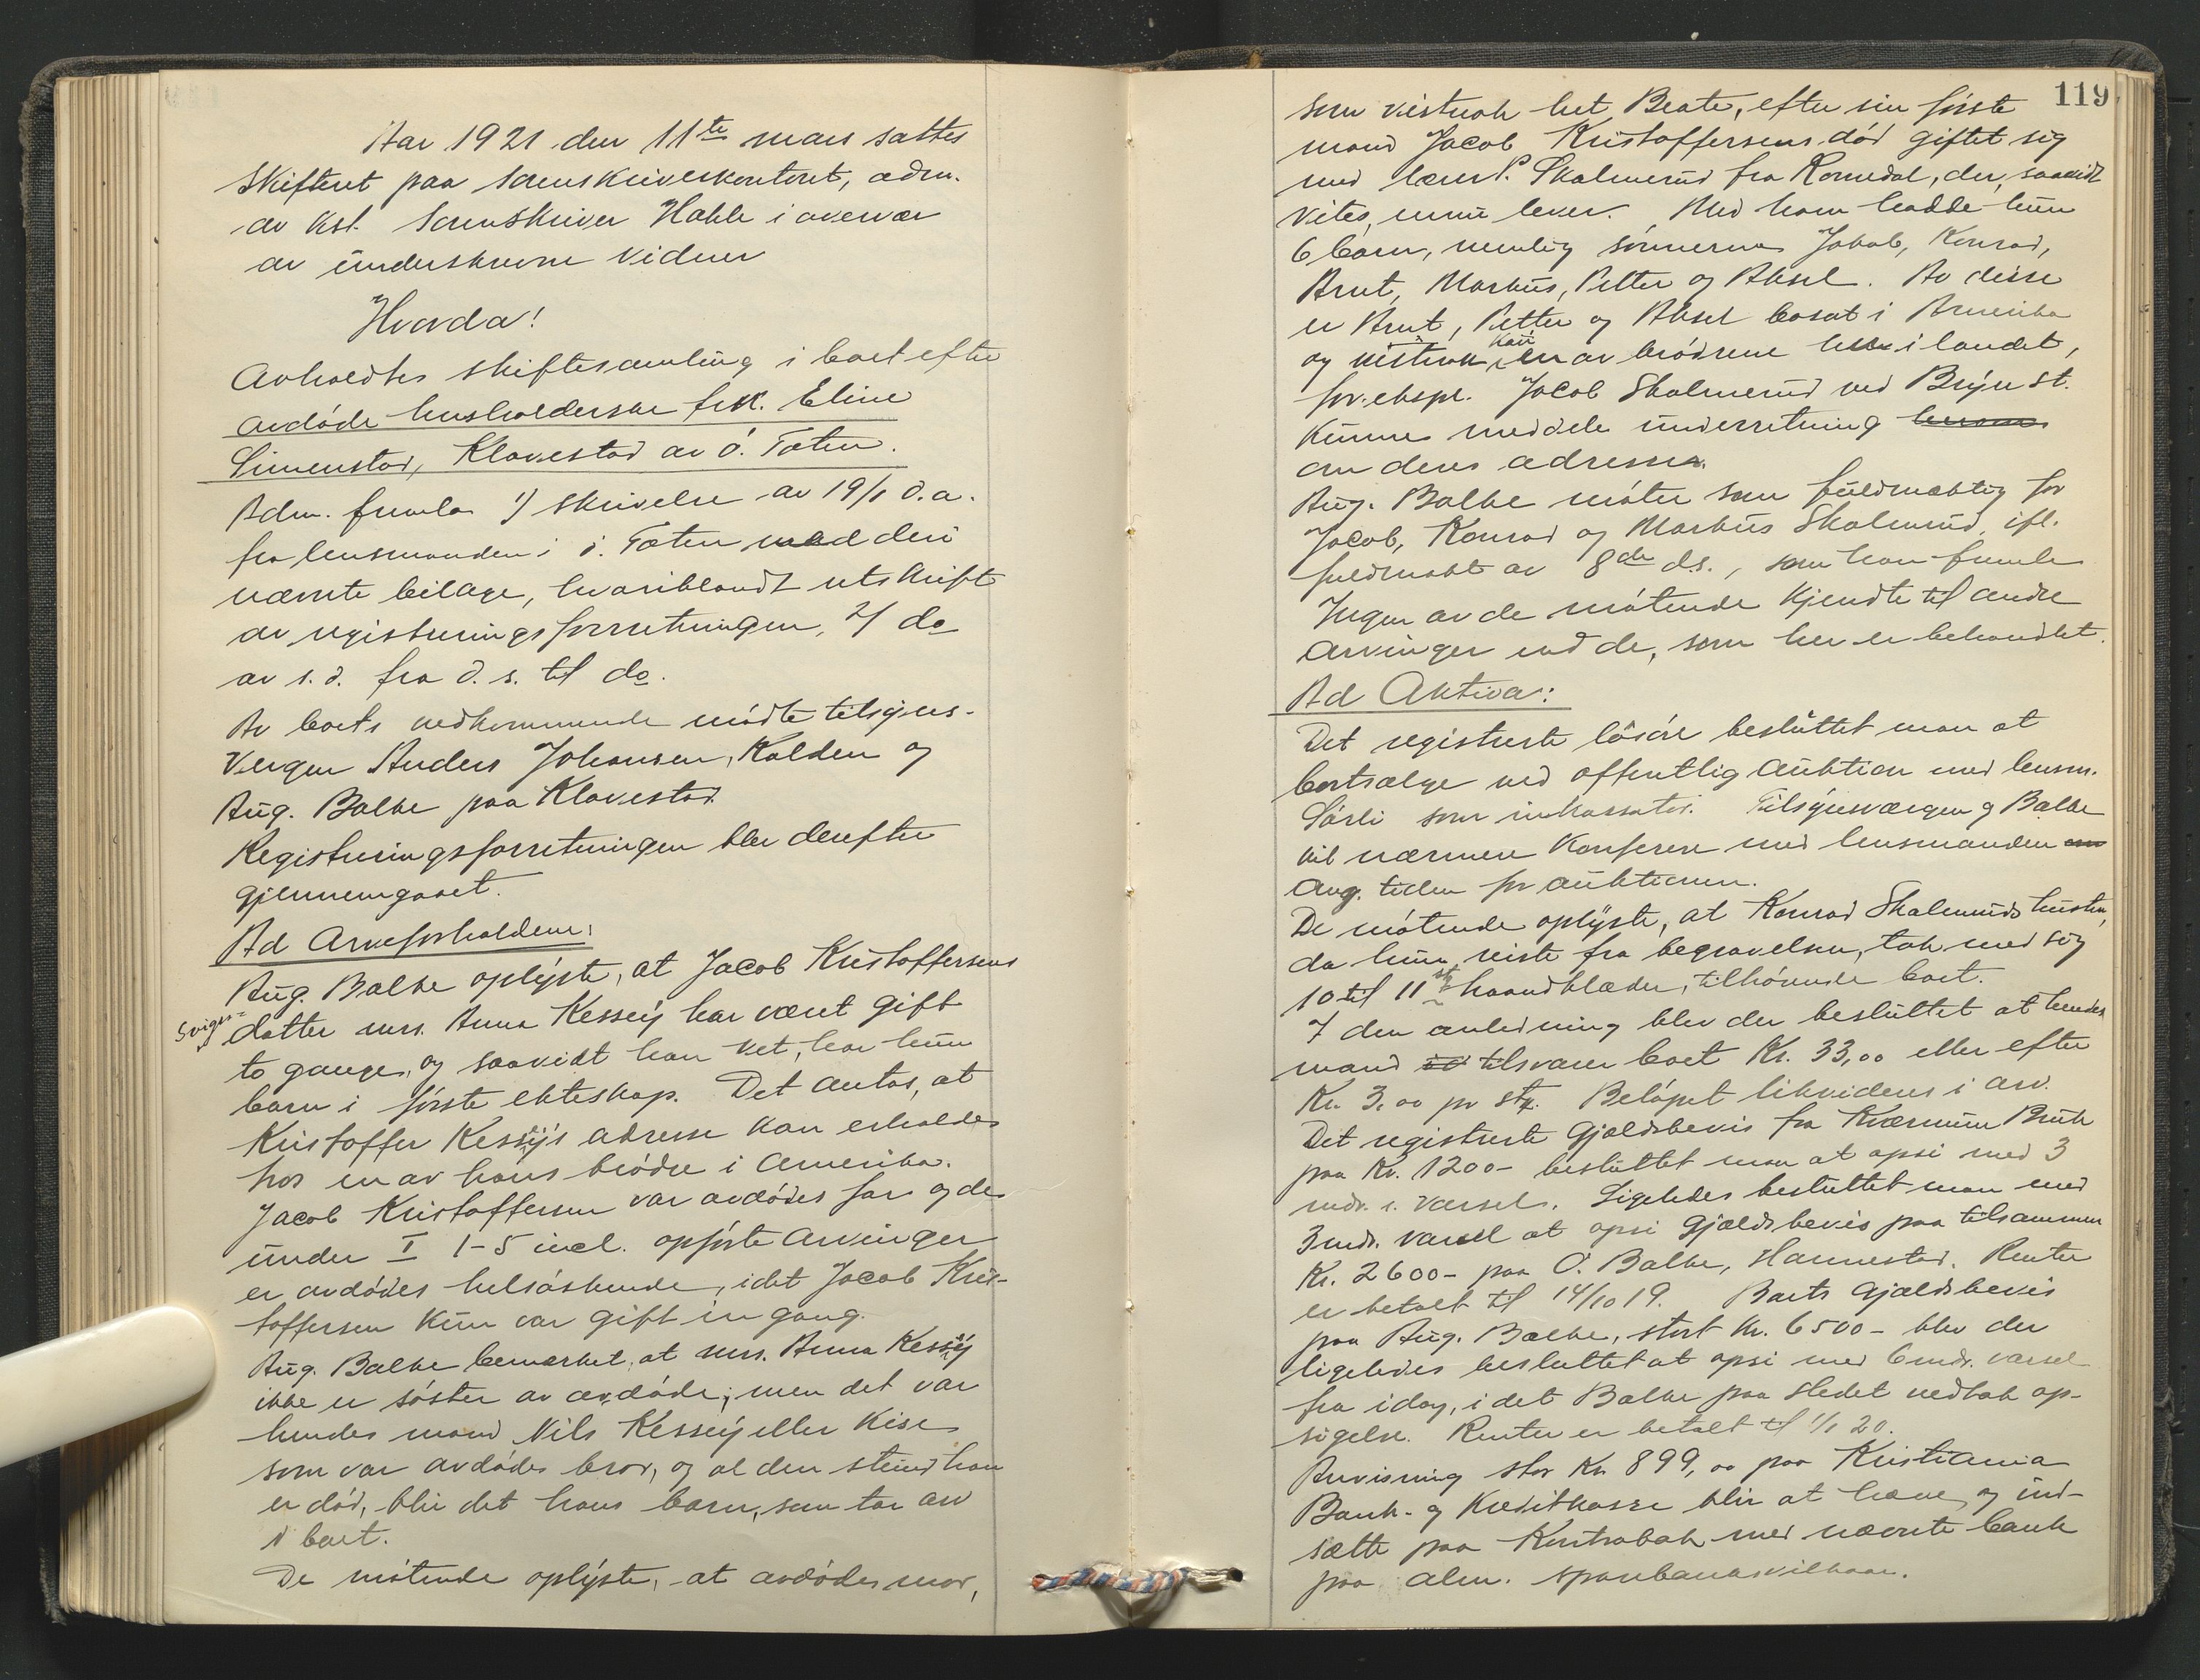 Aar 1921 den 11te mars sattes
Skifteret paa Sorenskriverkontoret, adm.
av kst. Sorenskriver Hakle i overvær
av underskrevne vidner
Hvorda!
Avholdtes skiftesamling i boet efter
avdøde husholderske frk. Eline
Simenstad, Klovestad av ö. Toten.
Adm. fremla 1) skrivelse av 19/1 d.a.
fra lensmanden i ö. Toten med deri
nævnte bilage, hvoriblandt utskrift
av registreringsforretningen, 2) do
av s.d. fra d.s. til do.
Av boets vedkommende mødte tilsyns-
vergen Anders Johansen, Kolden og
Aug. Balke paa Klovestad.
Registreringsforretningen blev derefter
gjennemgaaet.
Ad Arveforholdene:
Aug. Balke oplyste, at Jacob Kristoffersens
Sviger-
datter mrs. Anna Kessey har været gift
to gange, og saavidt han vet, har hun
barn i første ekteskap. Det antas, at
Kristoffer Kessey's adresse kan erholdes
hos en av hans brødre i Amerika.
Jacob Kristoffersen var avdødes far og de
under I 1-5 incl. opførte arvinger
er avdødes helsøskende, idet Jacob Kris-
toffersen kun var gift en gang.
Aug. Balke bemerket, at mrs. Anna Kessey
ikke er søster av avdøde; men det var
hendes mand Nils Kessey eller Kise
som var avdødes bror, og al den stund han
er død, blir det hans barn, som tar arv
i boet.
De møtende oplyste, at avdødes mor,
119
som vistnok het Beate, efter sin første
mand Jacob Kristoffersens død giftet sig
med lærer P. Skalmerud fra Romedal, der, saavidt
vites, ennu lever. Med ham hadde hun
6 barn, nemlig sønnerne Jakob, Konrad,
Arnt, Markus, Petter og Aksel. Av disse
er Arnt, Petter og Aksel bosat i Amerika
kan
og vistnok en av brødrene her i landet,
for.ekspl. Jacob Skalmerud ved Bryn St.
kunne meddele underretning
om deres adresser.
Aug. Balke møter som fuldmægtig for
Jacob, Konrad og Markus Skalmerud, ifl.
fuldmakt av 8de ds., som han fremla
Ingen av de møtende kjendte til andre
arvinger end de, som her er behandlet.
Ad Aktiva:
Det registrerte løsøre besluttet man at
bortsælge ved offentlig Auktion med lensm.
Sørli som inkassator. Tilsynsvergen og Balke
vil nærmere konferere med lensmanden
ang. tiden for auktionen.
De møtende oplyste, at Konrad Skalmeruds hustru,
da hun reiste fra begravelsen, tok med sig
10 til 11 stk haandklæder, tilhørende boet.
I den anledning blev der besluttet at hendes
mand tilsvarer boet Kr. 33,00 eller efter
Kr. 3.00 pr stk. Beløpet likvideres i arv.
Det registrerte Gjældsbevis fra Kværnum Bruk
paa Kr. 1200- besluttet man at opsi med 3
mdr.s. varsel. Ligeledes besluttet man med
3 mdr. varsel at opsi gjældsbevis paa tilsammen
Kr. 2600- paa O. Balke, Hannestad. Renter
er betalt til 14/10 19. Boets Gjældsbevis
paa Aug. Balke, stort kr. 6500- blev der
ligeledes besluttet at opsi med 6 mdr. varsel
fra idag, i det Balke paa stedet vedtok op-
sigelse. Renter er betalt til 1/1 20.
Anvisning stor Kr. 899,00 paa Kristiania
Bank- og Kreditkasse blir at hæve og ind-
sætte paa Kontrabok med nævnte bank
paa alm. sparebanksvilkaar.